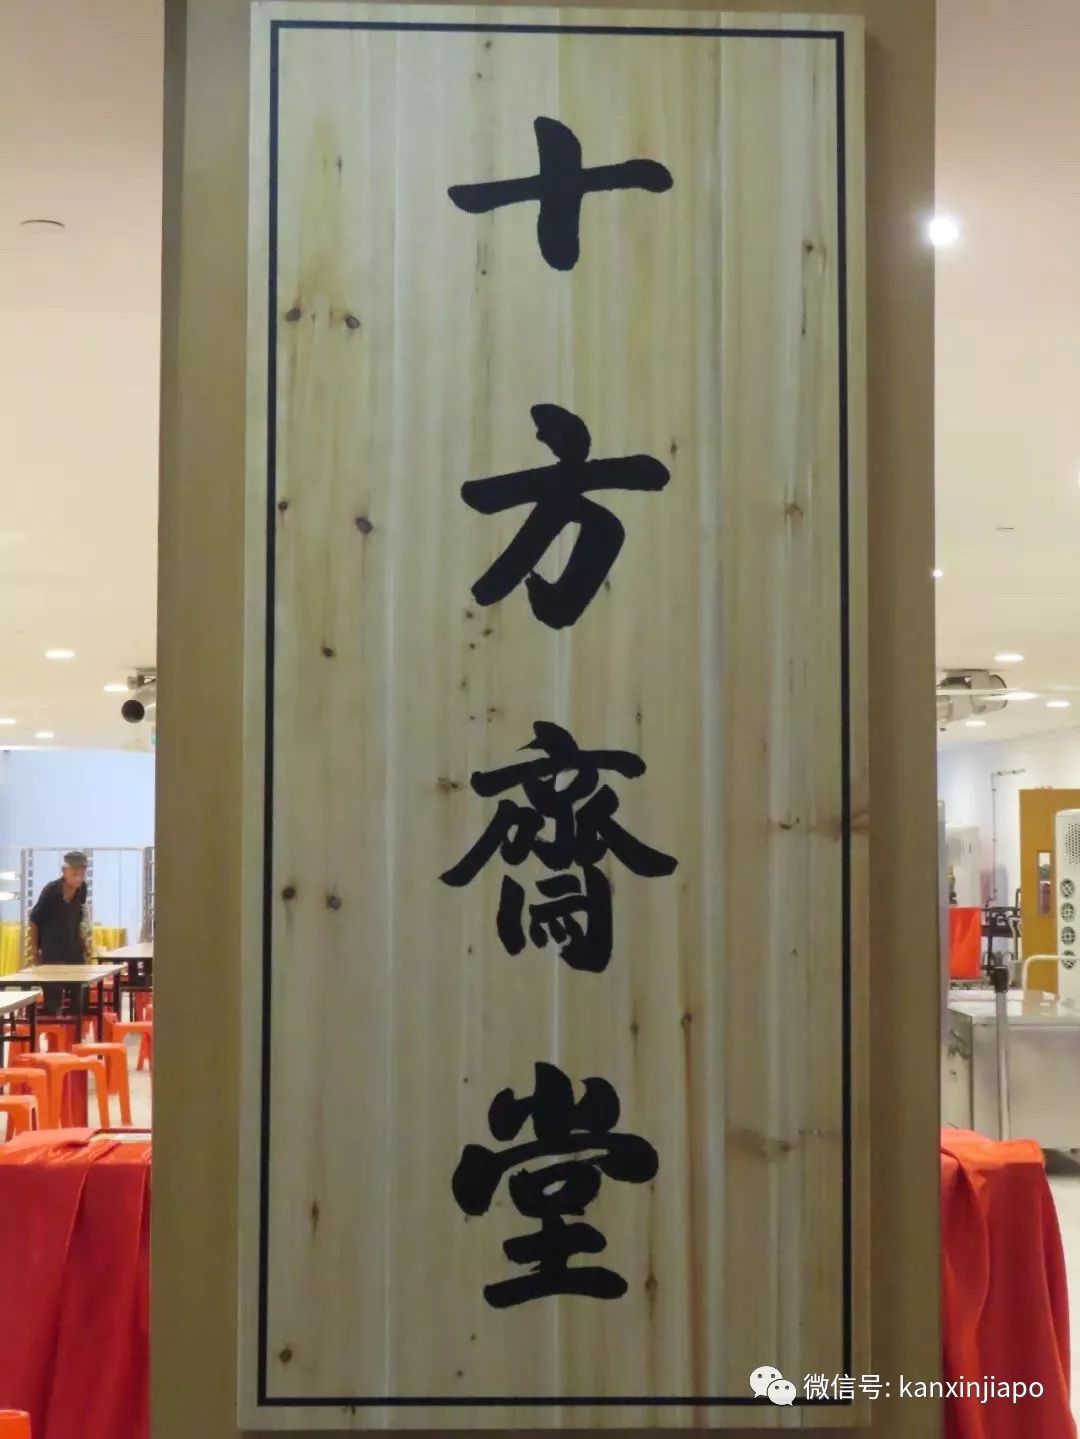 十方齋堂
微信号: kanxinjiapo